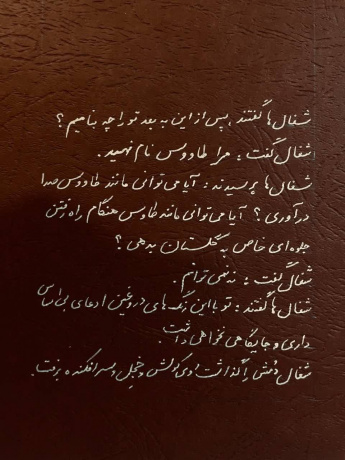 شغال ها گفتند، پس از این به بعد تو را چه بنامیم؟
شغال گفت: مرا طاووس نام نهید.
شغال ها پرسیدند: آیا می توانی مانند طاووس صدا
درآوری؟ آیا می توانی مانند طاوس هنگام راه رفتن
جلوه ای خاص به گلستان بدهی؟
شغال گفت: نه نمی توانم.
شغال ها گفتند: تو با این رنگ های دروغین ادعای بی اساس
داری و جایگاهی نخواهی داشت.
شغال دمش را گذاشت روی کولش و خجل و سرافکنده برفت.